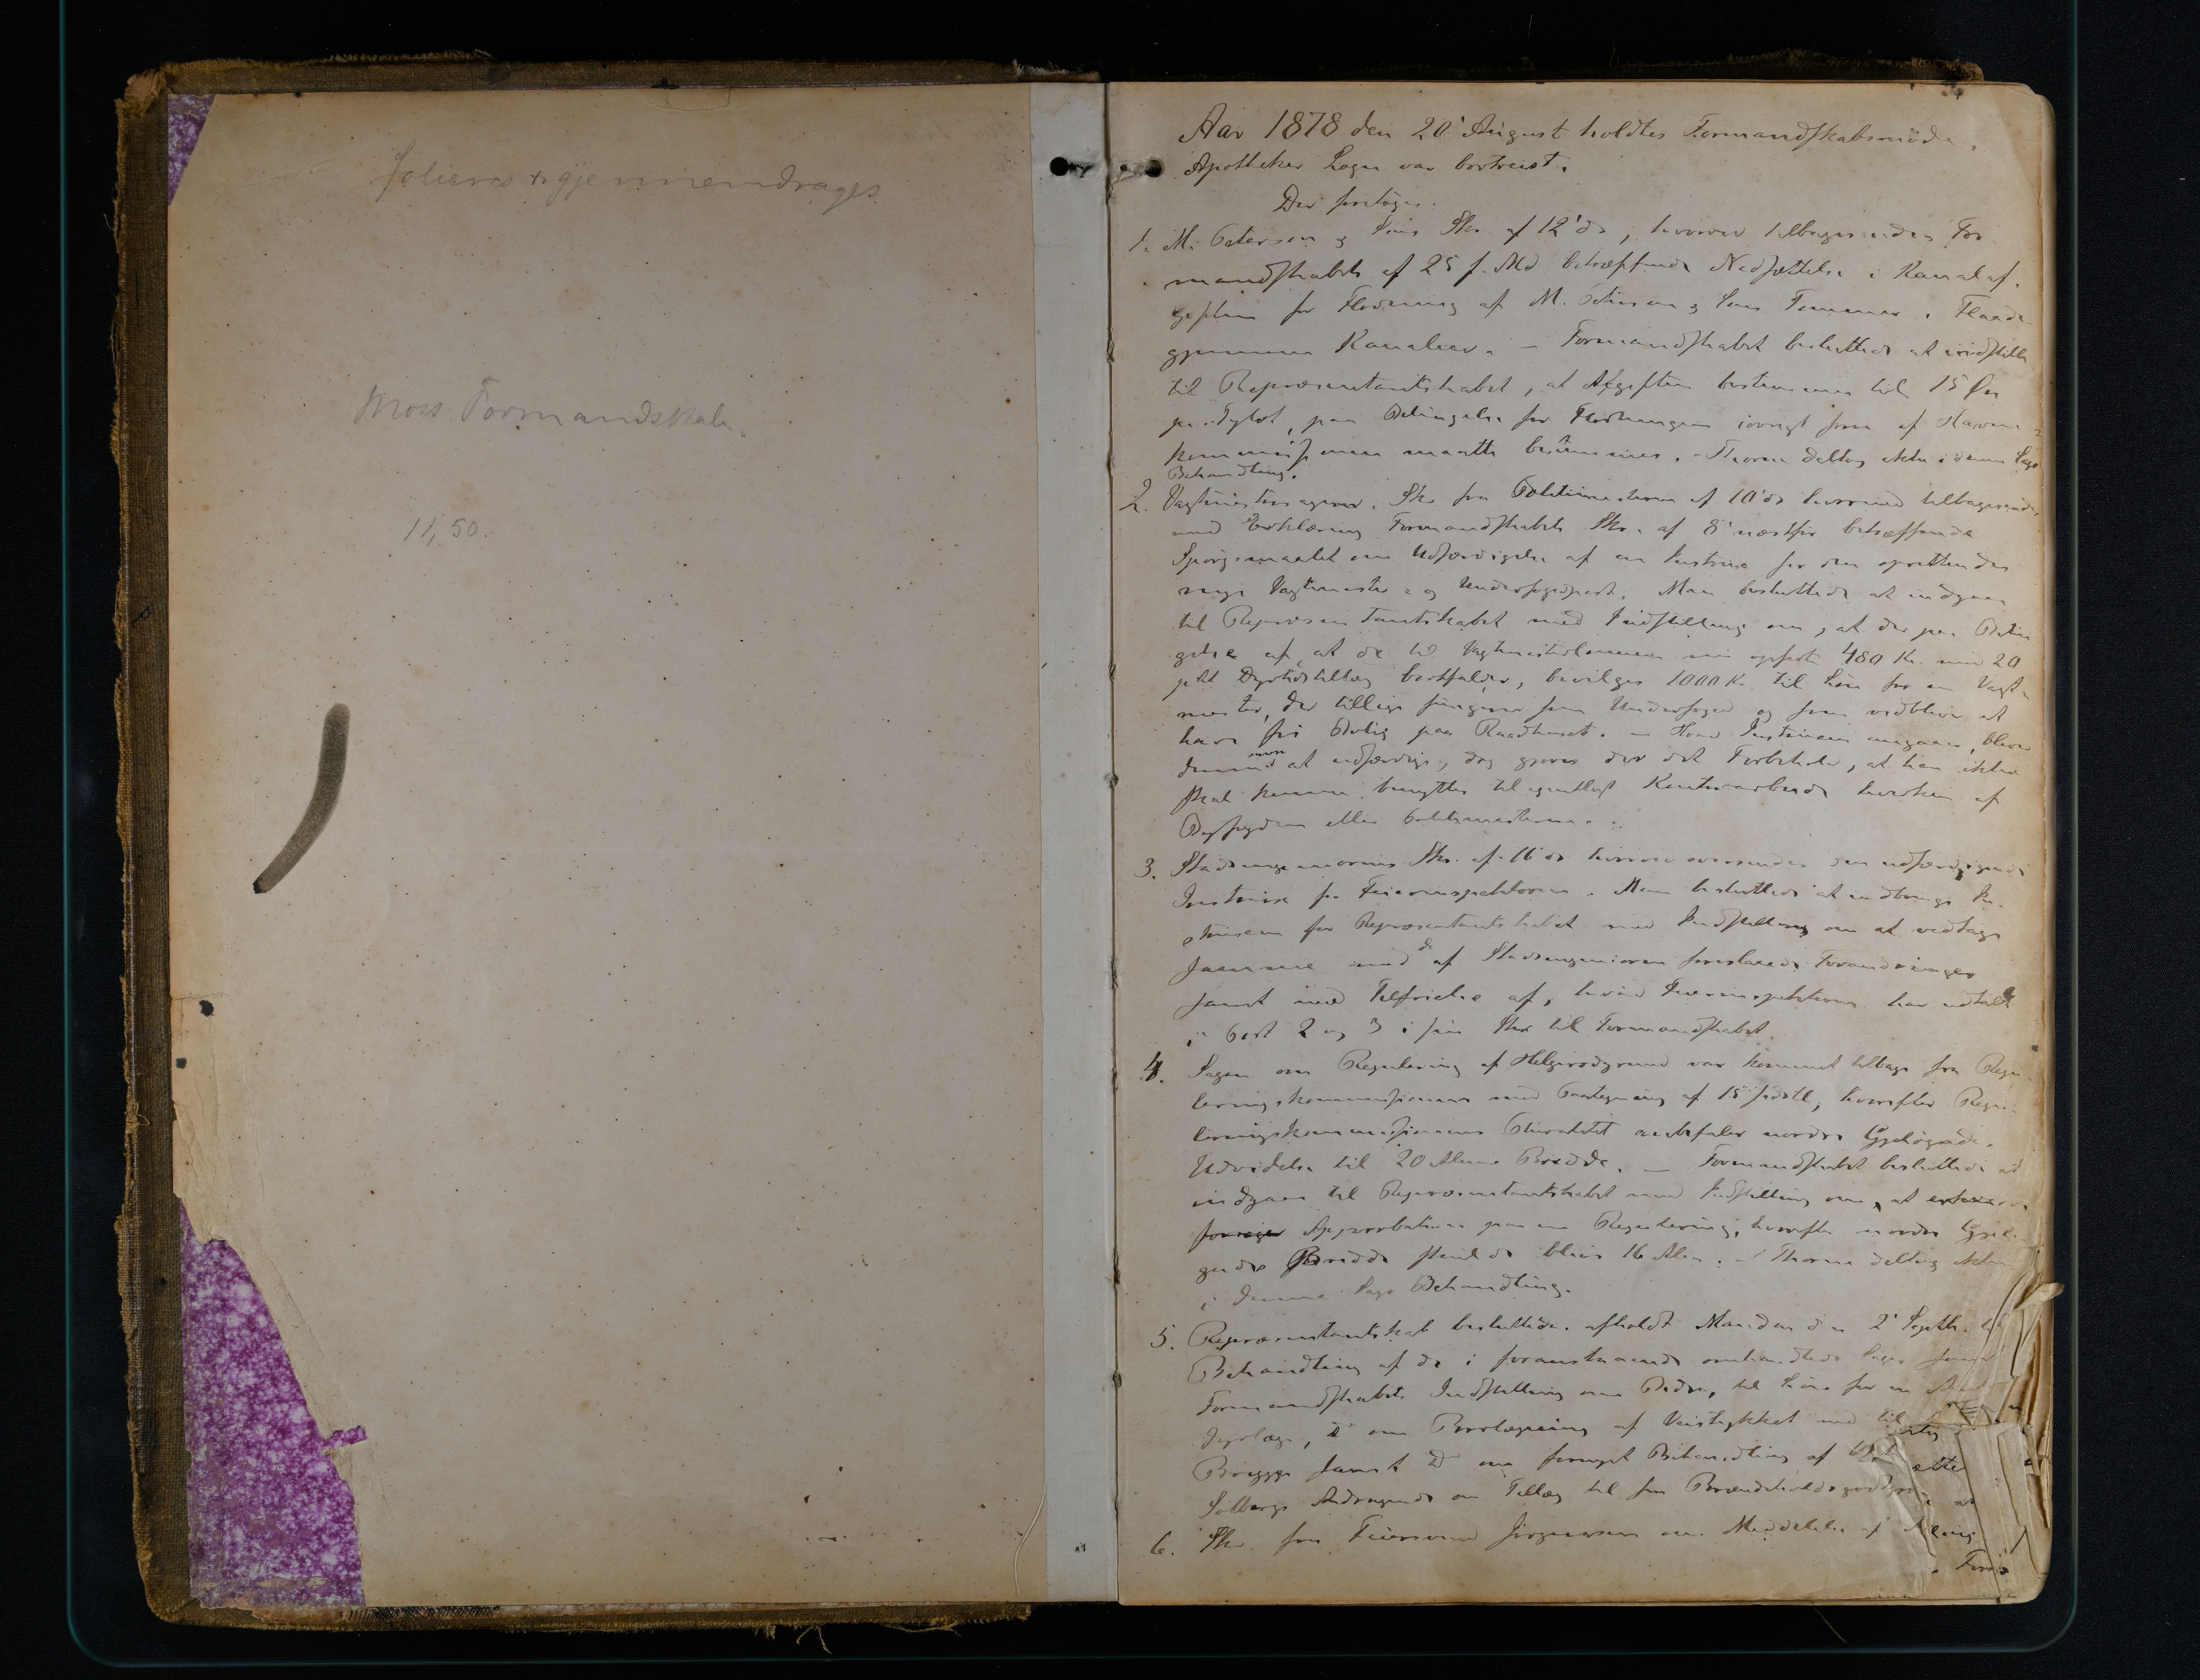 Folieres & gjennemdrages
Moss Formandskab.
11,50.
Aar 1878 den 20' August holdtes Formandskabsmöde.
Apotheker Logn var bortreist.
Der foretoges.
1. M. Peterson & Søns Skr. af 12' ds, hvorved tilbagesendes For-
mandskabets af 25 f. Md. betræffende Nedsættelse i Kanalaf-
giften for Flødning af M. Peterson & Søns Tømmer i Flaade
gjennem Kanalen. – Formandskabet besluttede at indstille
til Repræsentantskabet, at Afgiften bestemmes til 15 Øre
pr. Tylvt, paa Betingelse for Flødningen iøvrigt som af Havne-
kommissionen maatte bestemmes. – Thorne deltog ikke i denne Sags
Behandling.
2. Vagtmestersagen. Skr. fra Politimesteren af 10' ds hvormed tilbagesendes
med Erklæring Formandskabets Skr. af 8' næstfør betræffende
Spörgsmaalet om Udfærdigelse af en Instrux for den oprettendes
nye Vagtmester- og Underfogedpost. Man besluttede at indgaa
til Repræsentantskabet med Indstilling om, at der paa Betin-
gelse af, at de til Vagtmesterlønnen nu opførte 480 Kr. med 20
pCt. Dyrtidstillæg bortfalder, bevilges 1000 Kr. til Løn for en Vagt-
mester, der tillige fungerer som Underfoged og som vedbliver at
have fri Bolig paa Raadhuset. – Hvad Instruxen angaar, bliver
denne at udfærdige, dog gjøres der det Forbehold, at han ikke
skal kunne benyttes til egentligt Kontorarbeide hverken af
Byfogden eller Politimesteren.
3. Stadsingeniørens Skr. af 16' ds hvorved oversendes den udfærdigede
Instrux for Feierinspektøren. Man besluttede at indbringe In-
struxen for Repræsentantskabet med Indstilling om at vedtage
samme med de af Stadsingeniøren foreslaaede Forandringer
samt med Tilføielse af, hvad Feierinspektøren har udtalt
i Post 2 og 3 i sin Skr. til Formandskabet.
4. Sagen om Regulering af Helgerødgrund var kommet tilbage fra Regu-
leringskommissionen med Paategning af 15' sidstl., hvorefter Regu-
leringskommissionens Pluralitet anbefaler nordre Gjeløgades
Udvidelse til 20 Alens Bredde. – Formandskabet besluttede at
indgaa til Repræsentantskabet med Indstilling om, at
Approbation paa en Regulering, hvorefter nordre Gjelø-
gades Bredde skulde blive 16 Alen. – Thorne deltog ikke
i denne Sags Behandling.
5. Repræsentantskab besluttedes afholdt Mandag den 2' Septbr. til
Behandling af de i foranstaaende omhandlede Sager samt
Formandskabets Indstilling om Bidrag til Løn for en
Dyrlæge, om Brolægning af Veistykket ved
Brygge samt om fornyet Behandling af
Solbergs Andragende om Tillæg til sin Brændeholdsgodtgj.
6. Skr. fra Feiersvend Jörgensen om Meddelelse af